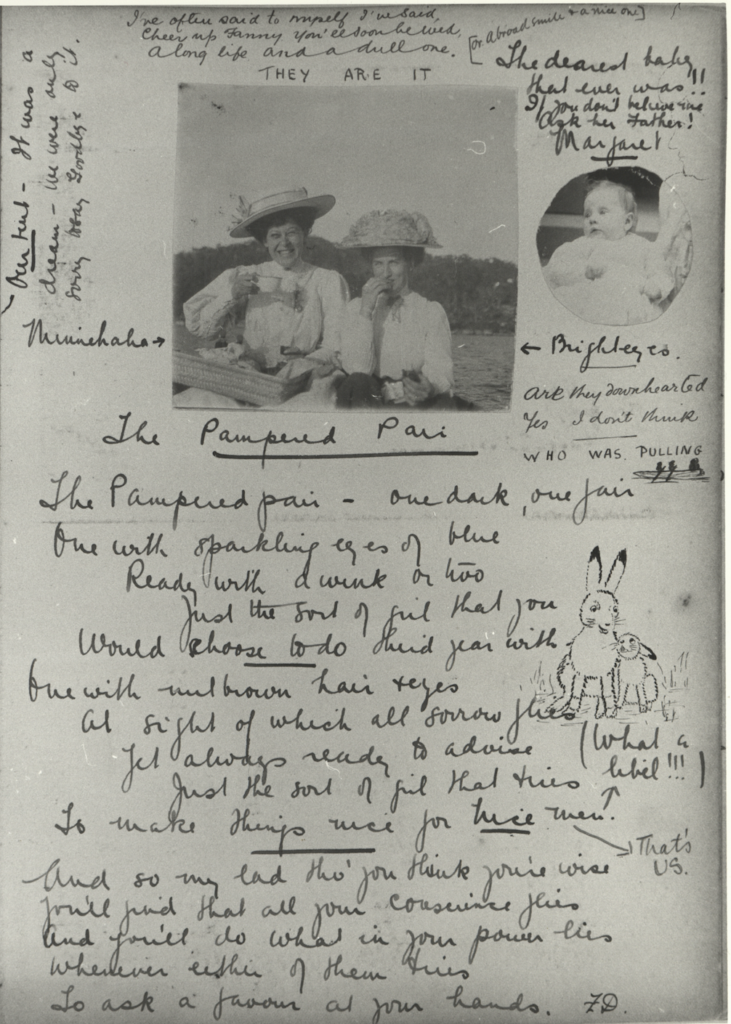 I've often said to myself I've said,
Cheer up Fanny you'll soon be wed,
A long life and a dull one.
[or a broad smile & a nice one]
THEY ARE IT
Our tent – It was a
dream – we were only
sorry Goodbye to it.
The dearest baby
that ever was!!
If you don't believe me
Ask her Father!
Margaret
Minnehaha →
← Brighteyes.
Are they downhearted
Yes I don't think
WHO WAS PULLING
The Pampered Pair
The Pampered pair – one dark, one fair
One with sparkling eyes of blue
Ready with a wink or two
Just the sort of girl that you
Would choose to do third year with
One with nutbrown hair & eyes
At sight of which all sorrow flies
Yet always ready to advise
Just the sort of girl that tries
To make things nice for nice men.
(What a
libel!!!)
That's
US.
And so my lad tho' you think you're wise
You'll find that all your conscience flies
And you'll do what in your power lies
Whenever either of them tries
To ask a favour at your hands. F.D.